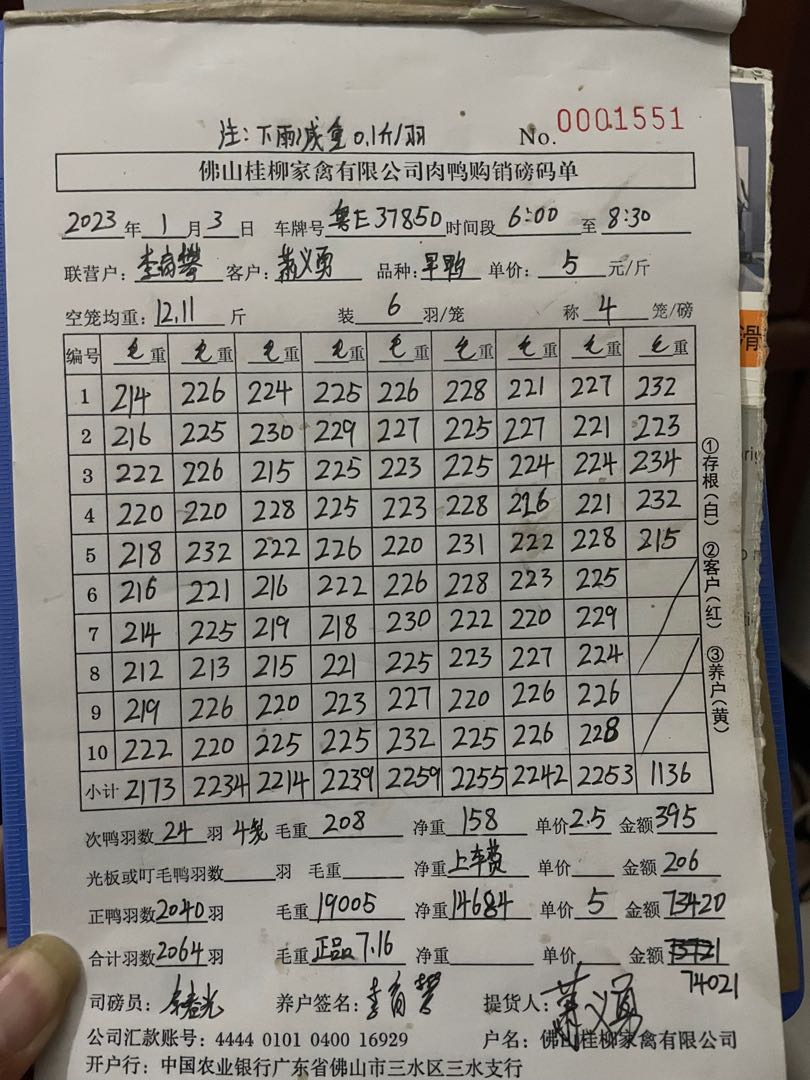 注:下雨减重0.1斤/羽 No. 0001551
佛山桂柳家禽有限公司肉鸭购销磅码单
2023年1月3日 车牌号粤E37850时间段6:00至8:30
联营户:李育攀 客户:萧义勇 品种:早鸭 单价:5元/斤
空笼均重:12.11斤 装6羽/笼 称4笼/磅
编号 毛重 毛重 毛重 毛重 毛重 毛重 毛重 毛重 毛重
1 214 226 224 225 226 228 221 227 232
2 216 225 230 229 227 225 227 221 223
3 222 226 215 225 223 225 224 224 234
4 220 220 228 225 223 228 216 221 232
5 218 232 222 226 220 231 222 228 215
6 216 221 216 222 226 228 223 225
7 214 225 219 218 230 222 220 229
8 212 213 215 221 225 223 227 224
9 219 226 220 223 227 220 226 226
10 222 220 225 225 232 225 226 228
小计 2173 2234 2214 2239 2259 2255 2242 2253 1136
次鸭羽数24羽 4笼 毛重208 净重158 单价2.5 金额395
光板或叮毛鸭羽数 羽 毛重 净重上车费 单价 金额206
正鸭羽数2040羽 毛重19005 净重14684 单价5 金额73420
合计羽数2064羽 毛重正品7.16 净重 单价 金额
74021
司磅员: 养户签名:李育攀 提货人:萧义勇
公司汇款账号:4444 0101 0400 16929 户名:佛山桂柳家禽有限公司
开户行:中国农业银行广东省佛山市三水区三水支行
①存根(白) ②客户(红) ③养户(黄)